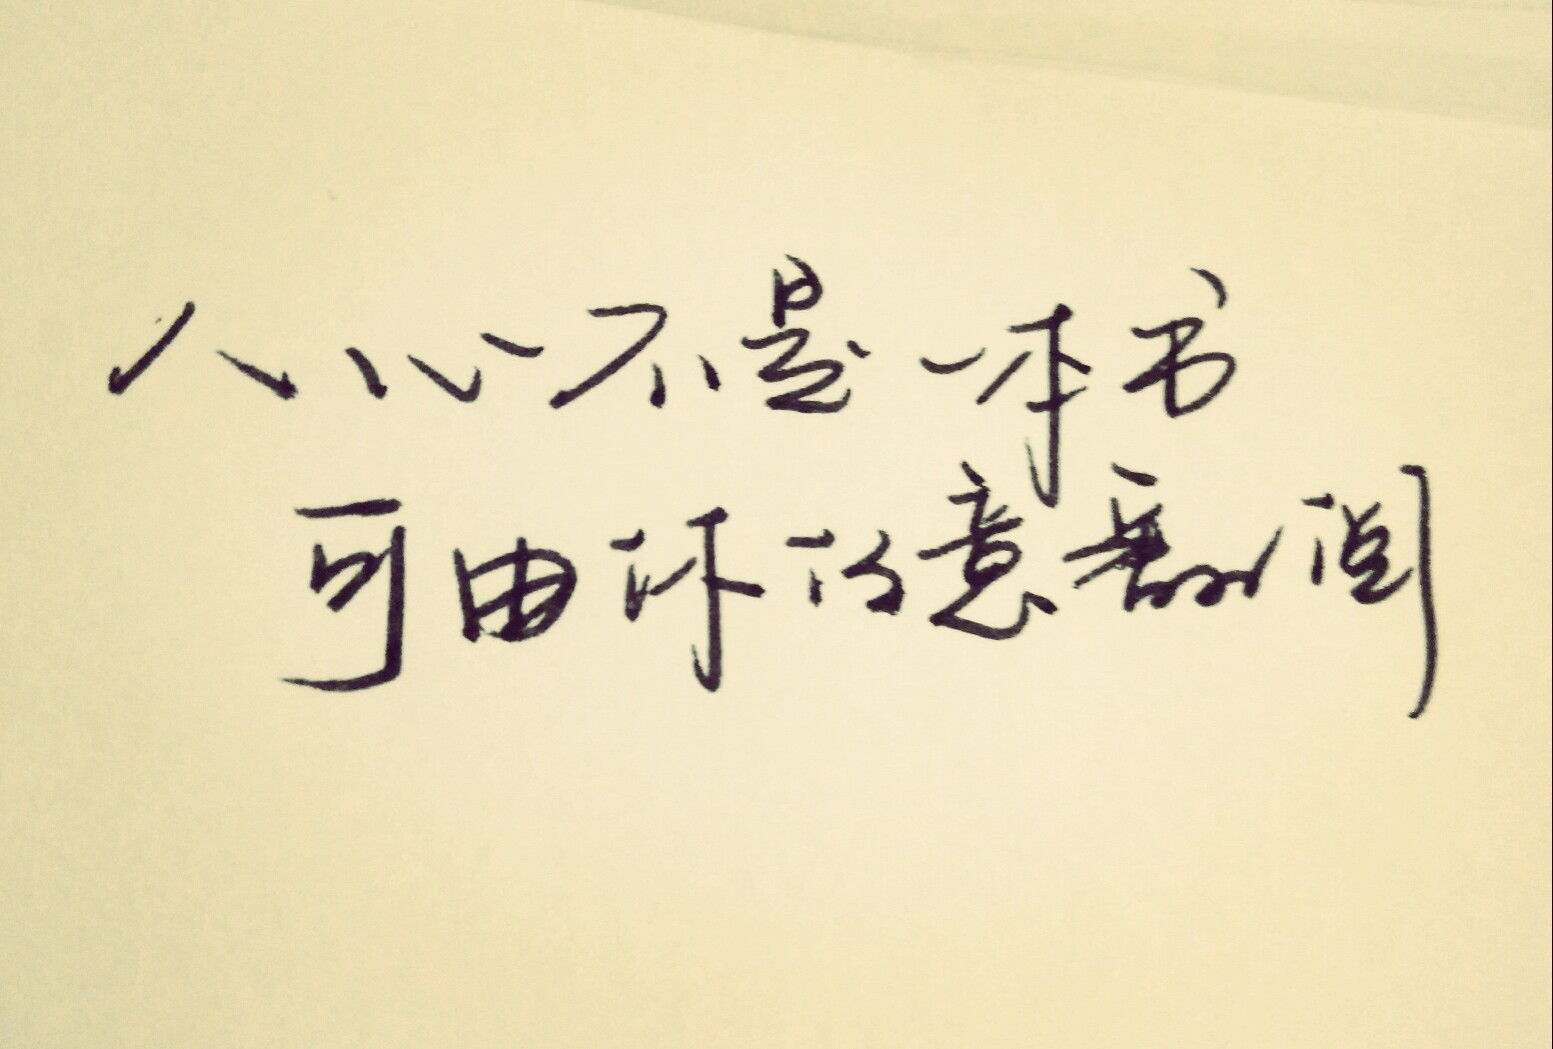 人心不是一本书
可由你随意翻阅